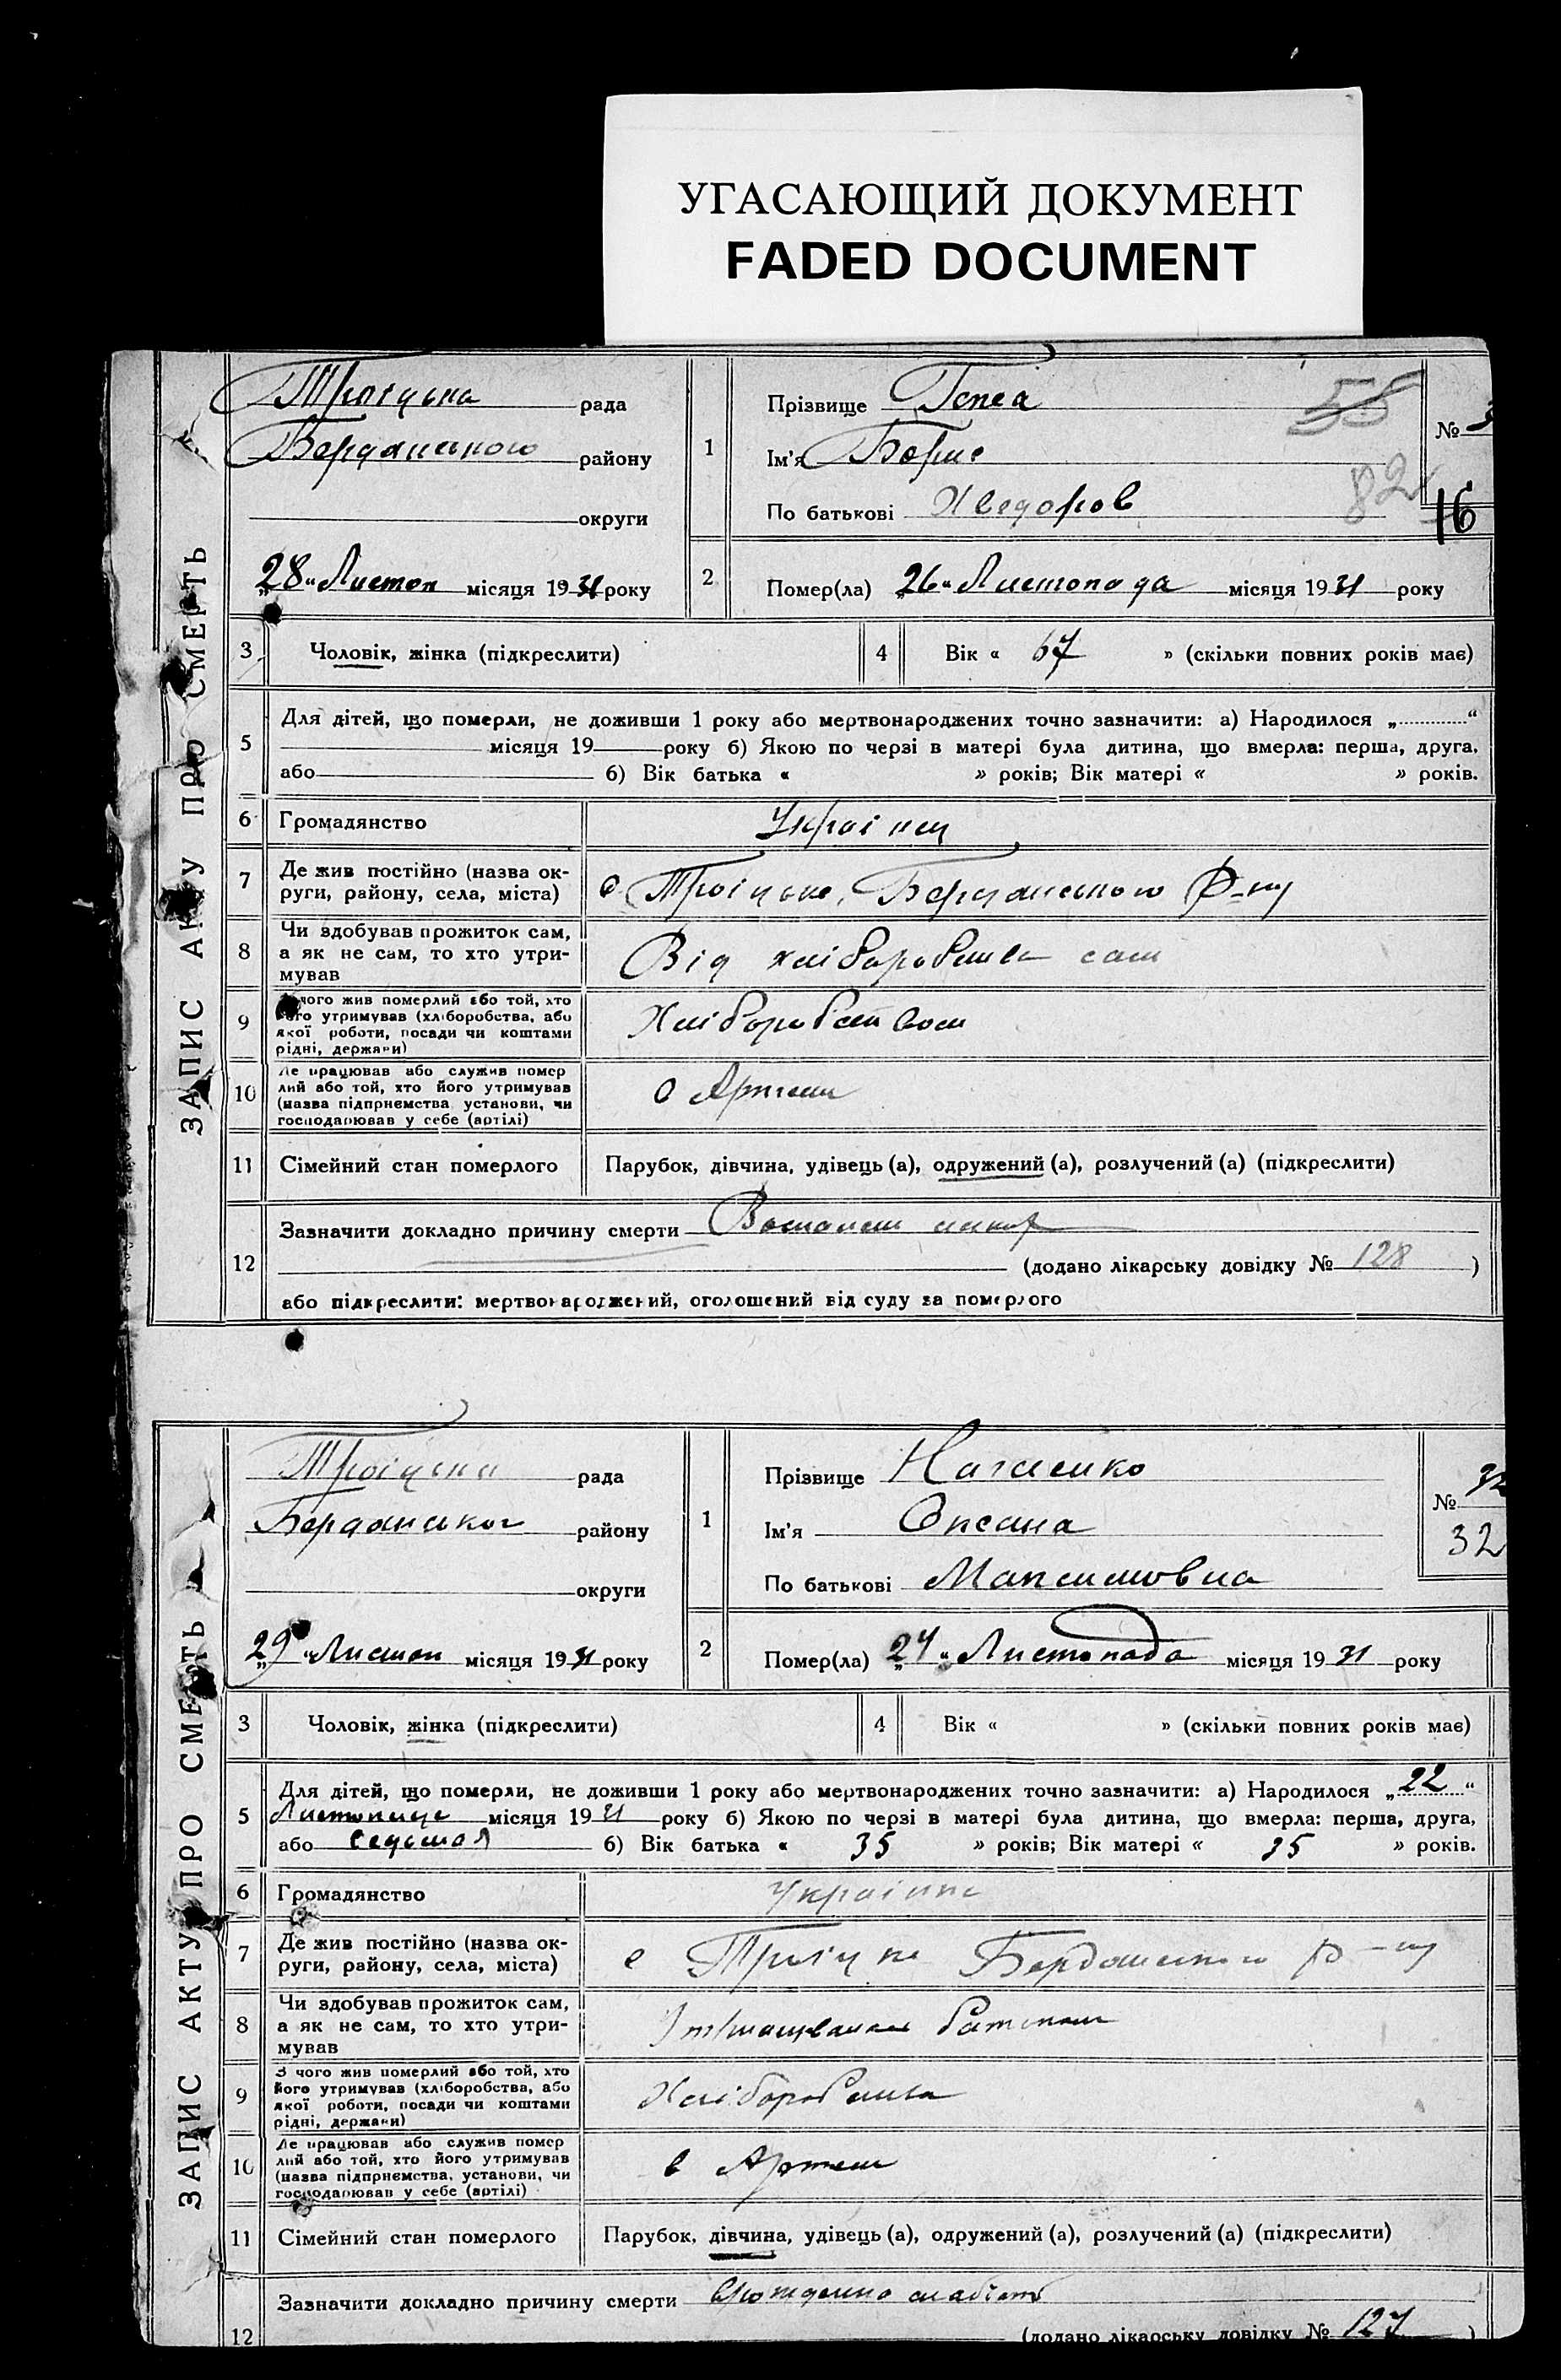 УГАСАЮЩИЙ ДОКУМЕНТ
FADED DOCUMENT
ЗАПИС АКТУ ПРО СМЕРТЬ
Троіцька рада
Бердянського району
округи
„28“ Листоп місяця 1931 року
1
Прізвище
Ім'я Борис
По батькові Хведоров
58
82
№ 3
16
2
Помер(ла) „26“ Листопада місяця 1931 року
3 Чоловік, жінка (підкреслити)
4 Вік « 67 » (скільки повних років має)
5 Для дітей, що померли, не доживши 1 року або мертвонароджених точно зазначити: а) Народилося „ “
місяця 19 року б) Якою по черзі в матері була дитина, що вмерла: перша, друга,
або б) Вік батька « » років; Вік матері « » років.
6 Громадянство Українец
7 Де жив постійно (назва ок-
руги, району, села, міста)
с Троіцьке, Бердянського Р-ну
8 Чи здобував прожиток сам,
а як не сам, то хто утри-
мував
Від хліборобства сам
9 З чого жив померлий або той, хто
його утримував (хліборобства, або
якої роботи, посади чи коштами
рідні, держави)
Хліборобством
10 Де працював або служив помер
лий або той, хто його утримував
(назва підприємства, установи, чи
господарював у себе (артілі)
Артели
11 Сімейний стан померлого Парубок, дівчина, удівець (а), одружений (а), розлучений (а) (підкреслити)
12 Зазначити докладно причину смерти
(додано лікарську довідку № 128 )
або підкреслити: мертвонароджений, оголошений від суду за померлого
ЗАПИС АКТУ ПРО СМЕРТЬ
Троіцька рада
Бердянськог району
округи
„29“ Листоп місяця 1931 року
1
Прізвище
Ім'я Оксана
По батькові Максимовна
№ 32
32
2
Помер(ла) „24“ Листопада місяця 1931 року
3 Чоловік, жінка (підкреслити)
4 Вік « » (скільки повних років має)
5 Для дітей, що померли, не доживши 1 року або мертвонароджених точно зазначити: а) Народилося „22“
місяця 1931 року б) Якою по черзі в матері була дитина, що вмерла: перша, друга,
або седьмая б) Вік батька « 35 » років; Вік матері « 35 » років.
6 Громадянство Українка
7 Де жив постійно (назва ок-
руги, району, села, міста)
с Троіцке Бердянського р-ну
8 Чи здобував прожиток сам,
а як не сам, то хто утри-
мував
батьком
9 З чого жив померлий або той, хто
його утримував (хліборобства, або
якої роботи, посади чи коштами
рідні, держави)
Хліборобства
10 Де працював або служив помер
лий або той, хто його утримував
(назва підприємства, установи, чи
господарював у себе (артілі)
в Артели
11 Сімейний стан померлого Парубок, дівчина, удівець (а), одружений (а), розлучений (а) (підкреслити)
12 Зазначити докладно причину смерти врожденна слабість
(додано лікарську довідку № 127 )